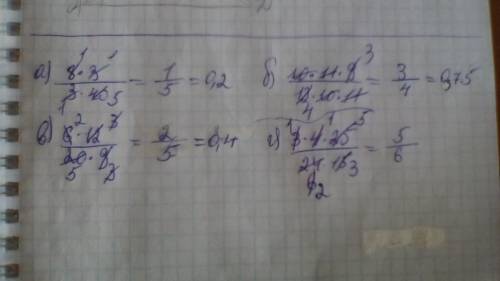 а) 8·3/3·40 = 1/5 = 0,2 б) 10·11·9/12·10·11 = 3/4 = 0,75
в) 6·12/20·9 = 2/5 = 0,4 г) 3·4·25/24·15 = 5/6